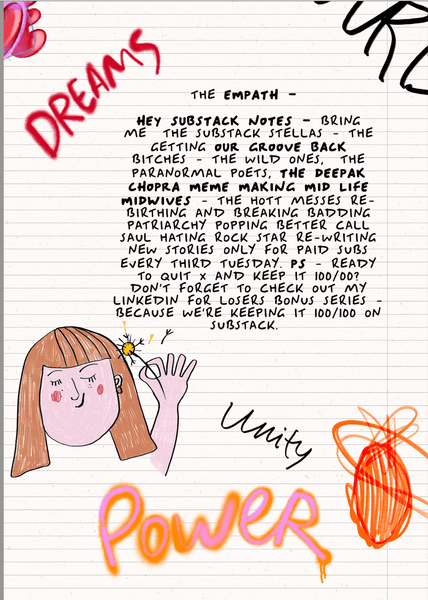 DREAMS
THE EMPATH -
HEY SUBSTACK NOTES - BRING
ME THE SUBSTACK STELLAS - THE
GETTING OUR GROOVE BACK
BITCHES - THE WILD ONES, THE
PARANORMAL POETS, THE DEEPAK
CHOPRA MEME MAKING MID LIFE
MIDWIVES - THE HOTT MESSES RE-
BIRTHING AND BREAKING BADDING
PATRIARCHY POPPING BETTER CALL
SAUL HATING ROCK STAR RE-WRITING
NEW STORIES ONLY FOR PAID SUBS
EVERY THIRD TUESDAY. PS - READY
TO QUIT X AND KEEP IT 100/00?
DON'T FORGET TO CHECK OUT MY
LINKEDIN FOR LOSERS BONUS SERIES -
BECAUSE WE'RE KEEPING IT 100/100 ON
SUBSTACK.
Unity
POWER